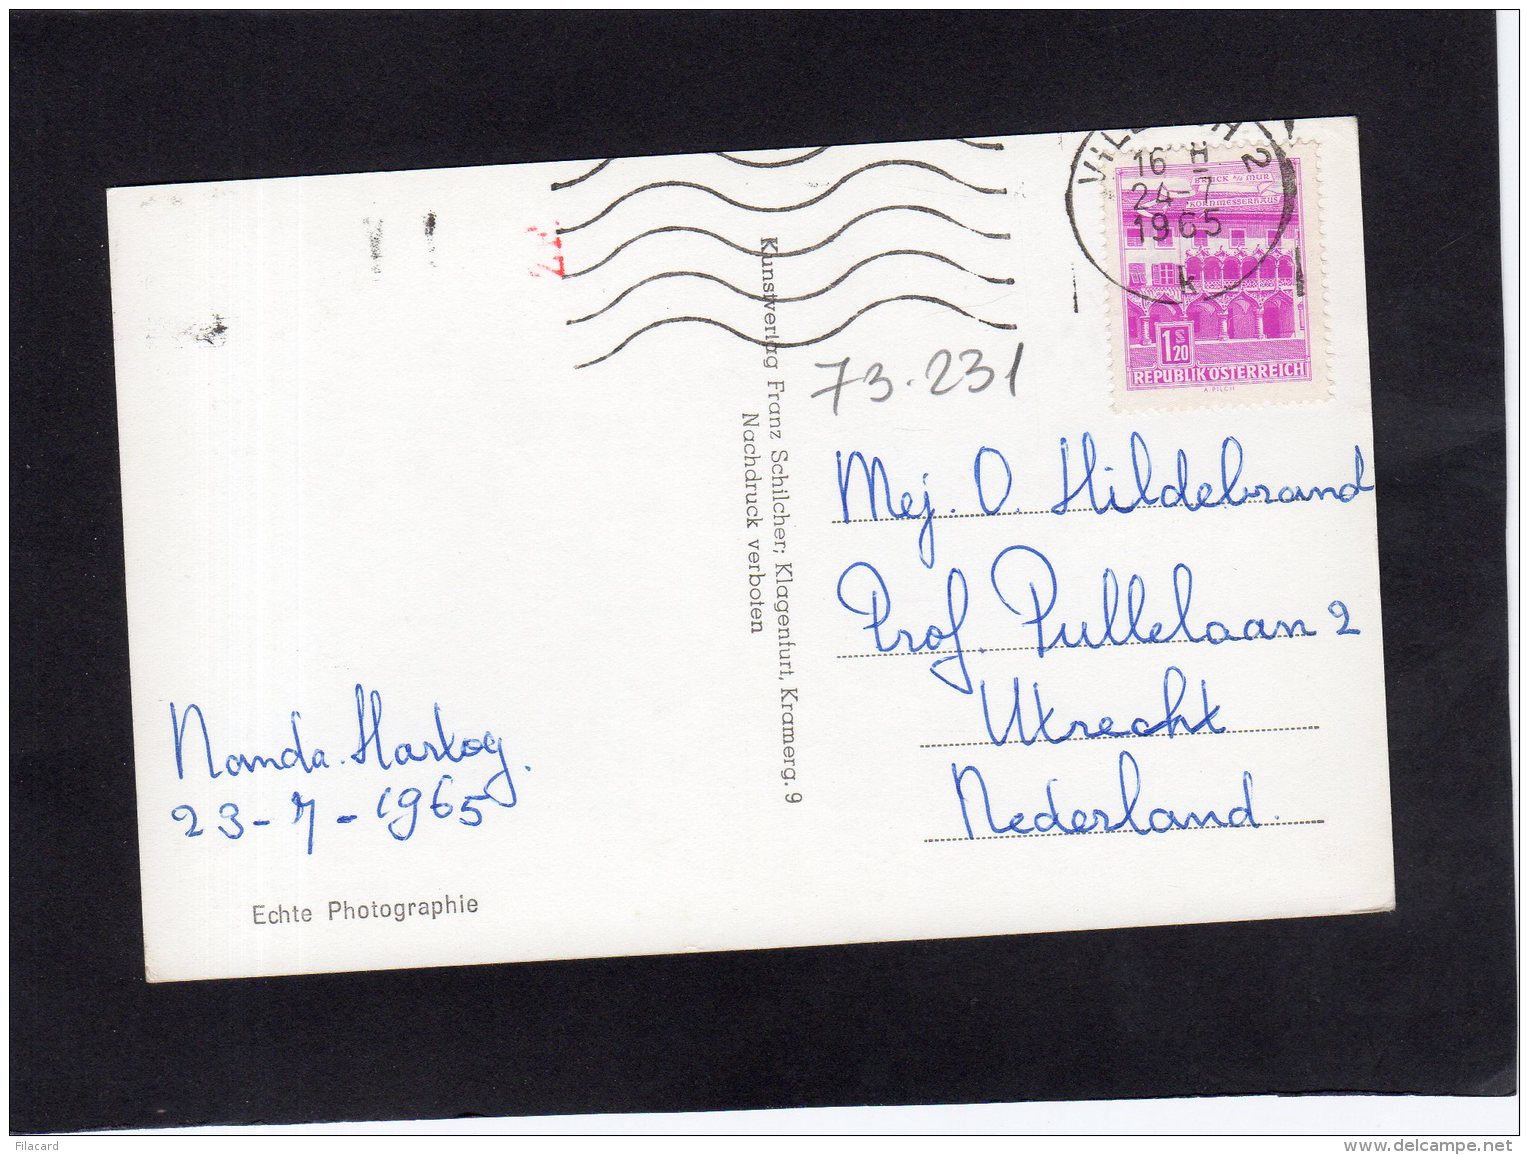 16 H
24-7
1965
2
k
BRUCK a/d MUR
KORNMESSERHAUS
1 S 20
REPUBLIK ÖSTERREICH
A. PILCH
73.231
Kunstverlag Franz Schilcher; Klagenfurt, Kramerg. 9
Nachdruck verboten
Mej. O. Hildebrand
Prof. Pullelaan 2
Utrecht
Nederland.
Nanda Hartog.
23-7-1965
Echte Photographie
Filacard
www.delcampe.net